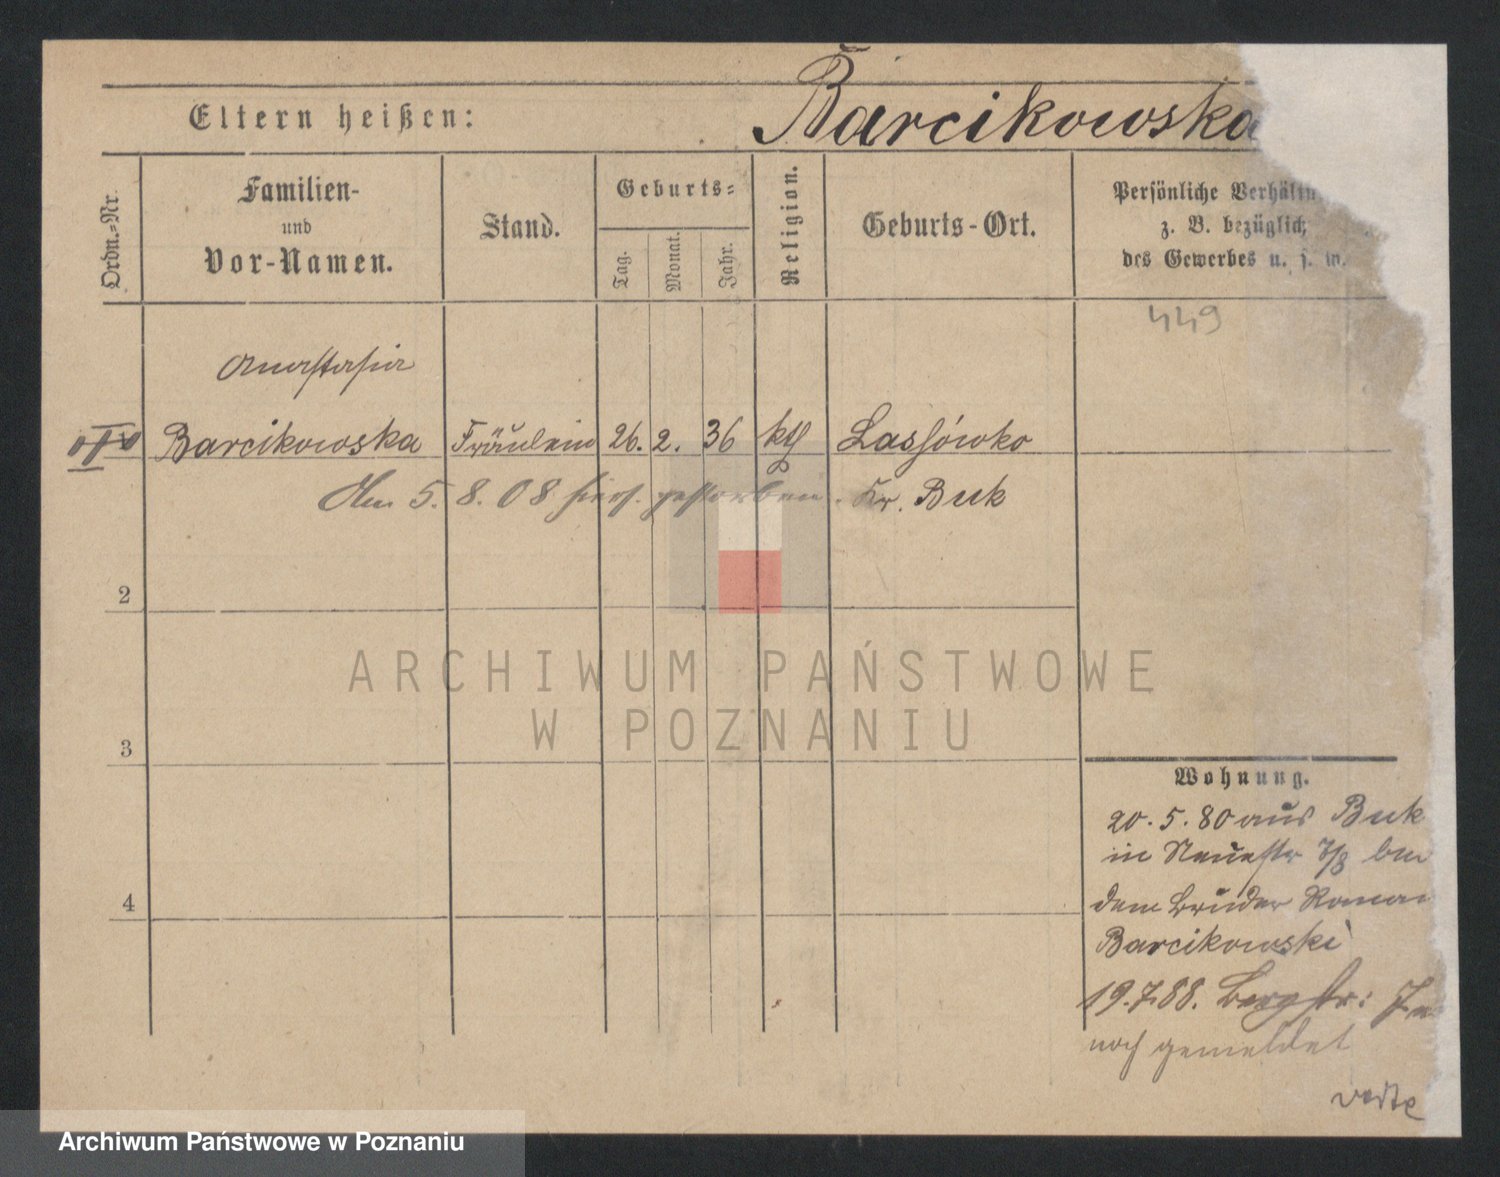 Eltern heißen:
Barcikowska
Ordn.-Nr.
Familien-
und
Vor-Namen.
Stand.
Geburts-
Tag.
Monat.
Jahr.
Religion.
Geburts-Ort.
Persönliche Verhältn
z. B. bezüglich
des Gewerbes u. s. w.
449
Anastasia
Barcikowska Fräulein 26. 2. 36 kth Lassówko
Am 5. 8. 08 hiers. gestorben. Kr. Buk
2
3
4
ARCHIWUM PAŃSTWOWE
W POZNANIU
Wohnung.
20. 5. 80 aus Buk
in Neuestr 7/8 bei
dem Bruder Roman
Barcikowski
19.7.88. Bergstr:
noch gemeldet
Archiwum Państwowe w Poznaniu